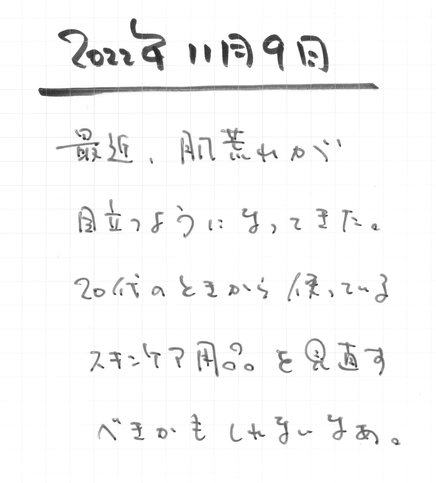 2022年11月9日
最近、肌荒れが
目立つようになってきた。
20代のときから使っている
スキンケア用品を見直す
べきかもしれないなあ。